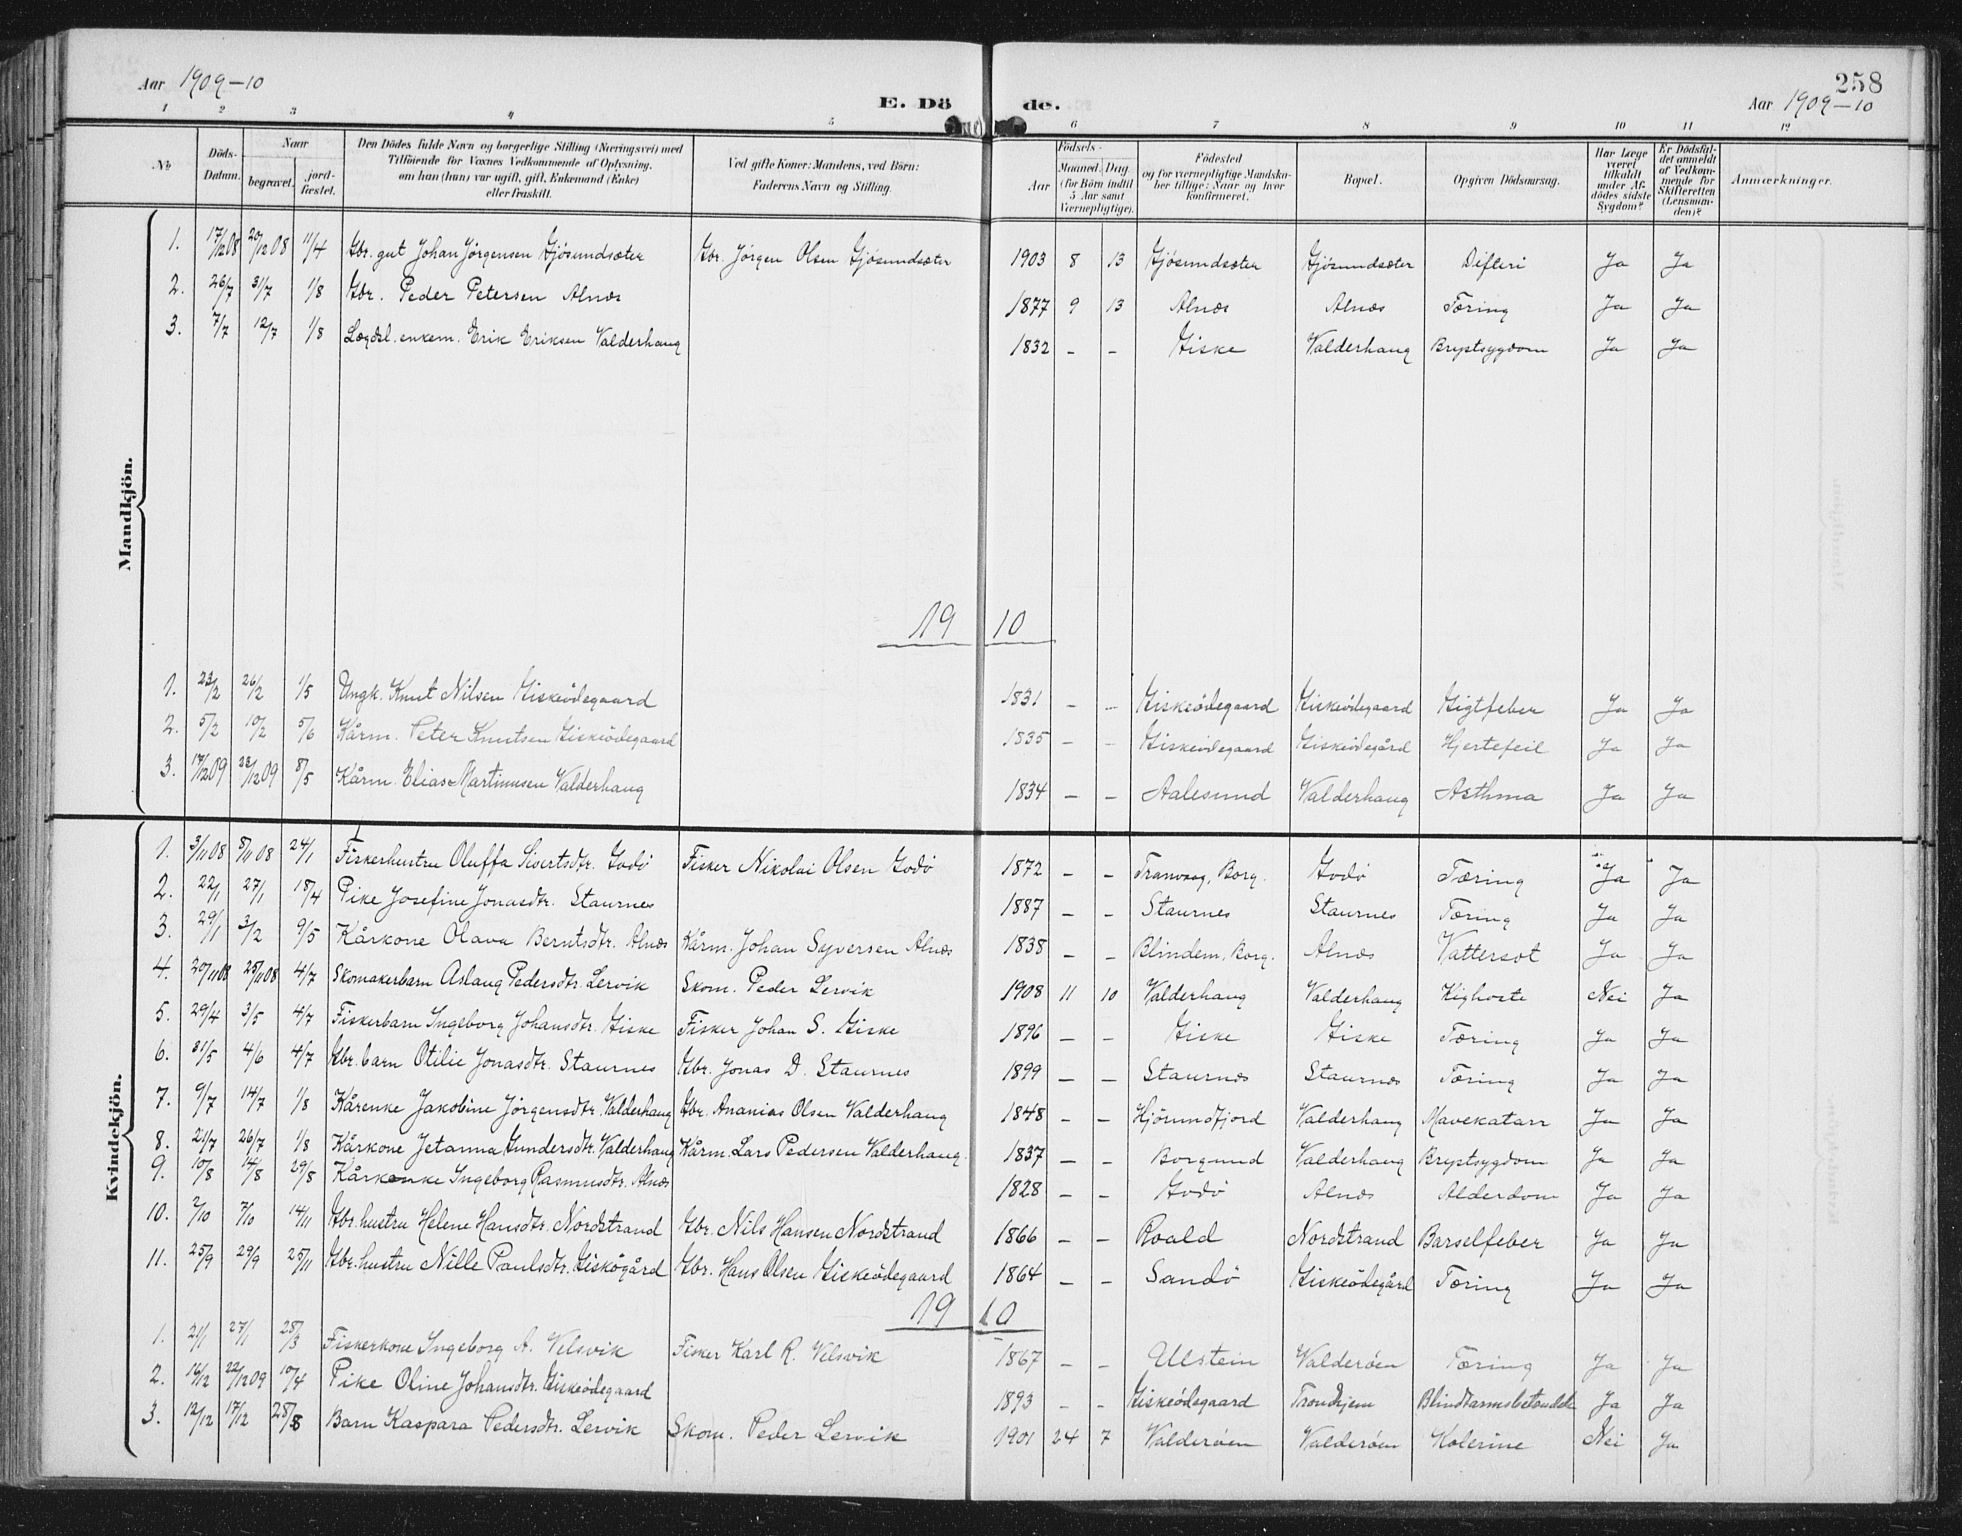 258
Aar 1909-10
E. Dö de.
Aar 1909-10
1 2 3 4 5 6 7 8 9 10 11 12
No
Döds-Datum.
Naar
begravet.
jord-fæstet.
Den Dödes fulde Navn og borgerlige Stilling (Næringsvei) med
Tilföiende for Voxnes Vedkommende af Oplysning,
om han (hun) var ugift, gift, Enkemand (Enke)
eller fraskilt.
Ved gifte Koner: Mandens, ved Börn:
Faderens Navn og Stilling.
Födsels-
Aar
Maaned. Dag.
(for Börn indtil
5 Aar samt
Værnepligtige).
Födested
og for værnepligtige Mandska-
ber tillige: Naar og hvor
konfirmeret.
Bopæl.
Opgiven Dödsaarsag.
Har Læge
været
tilkaldt
under Af-
dödes sidste
Sygdom?
Er Dödsfal-
det anmeldt
af Vedkom-
mende for
Skifteretten
(Lensman-
den)?
Anmærkninger.
Mandkjön.
1. 17/12 08 20/12 08 11/4 Gbr. gut Johan Jörgensen Gjösundsæter Gbr. Jörgen Olsen Gjösundsæter 1903 8 13 Gjösundsæter Gjösundsæter Difteri Ja Ja
2. 26/7 31/7 1/8 Gbr. Peder Petersen Alnæs 1877 9 13 Alnæs Alnæs Tæring Ja Ja
3. 7/7 12/7 1/8 Lægdsl. enkem. Erik Eriksen Valderhaug 1832 - - Giske Valderhaug Brystsygdom Ja Ja
1910
1. 23/2 26/2 1/5 Ungk. Knut Nilsen Giskeödegaard 1831 - - Giskeödegaard Giskeödegaard Gigtfeber Ja Ja
2. 5/2 10/2 5/6 Kårm. Peter Knutsen Giskeödegaard 1835 - - Giskeödegaard Giskeödegård Hjertefeil Ja Ja
3. 17/12 09 23/12 09 8/5 Kårm. Elias Martinusen Valderhaug 1834 - - Aalesund Valderhaug Asthma Ja Ja
Kvindekjön.
1. 3/11 08 8/11 08 24/1 Fiskerhustru Oluffa Sivertsdtr. Godö Fisker Nikolai Olsen Godö 1872 - - Tranvaag, Borg. Godö Tæring Ja Ja
2. 22/1 27/1 18/4 Pike Josefine Jonasdtr. Staurnes 1887 - - Staurnes Staurnes Tæring Ja Ja
3. 29/1 3/2 9/5 Kårkone Olava Berntsdtr. Alnæs Kårm. Johan Syversen Alnæs 1838 - - Blindem, Borg. Alnæs Vattersot Ja Ja
4. 20/11 08 25/11 08 4/7 Skomakerbarn Aslaug Pedersdtr. Lervik Skom. Peder Lervik 1908 11 10 Valderhaug Valderhaug Kighoste Nei Ja
5. 29/4 3/5 4/7 Fiskerbarn Ingeborg Johansdtr. Giske Fisker Johan S. Giske 1896 - - Giske Giske Tæring Ja Ja
6. 31/5 4/6 4/7 Gbr. barn Otilie Jonasdtr. Staurnes Gbr. Jonas D. Staurnes 1899 - - Staurnæs Staurnæs Tæring Ja Ja
7. 9/7 14/7 1/8 Kårenke Jakobine Jörgensdtr. Valderhaug Gbr. Ananias Olsen Valderhaug 1848 - - Hjörundfjord Valderhaug Mavekatarr Ja Ja
8. 21/7 26/7 1/8 Kårkone Jetanna Gundersdtr. Valderhaug Kårm. Lars Pedersen Valderhaug. 1837 - - Borgund Valderhaug Brystsygdom Ja Ja
9. 10/8 14/8 29/8 Kårkenke Ingeborg Rasmusdtr. Alnæs 1828 - - Godö Alnæs Alderdom Ja Ja
10. 2/10 7/10 14/11 Gbr. hustru Helene Hansdtr. Nordstrand Gbr. Nils Hansen Nordstrand 1866 - - Roald Nordstrand Barselfeber Ja Ja
11. 25/9 29/9 25/11 Gbr. hustru Nille Paulsdtr. Giskögård Gbr. Hans Olsen Giskeödegaard 1864 - - Sandö Giskeödegård Tæring Ja Ja
1910
1. 21/1 27/1 28/3 Fiskerkone Ingeborg A. Velsvik Fisker Karl R. Velsvik 1867 - - Ulstein Valderöen Tæring Ja Ja
2. 16/12 22/12 09 10/4 Pike Oline Johansdtr. Giskeödegaard 1893 - - Giskeödegaard Trondhjem Blindtarmsbetændelse Ja Ja
3. 12/12 17/12 28/8 Barn Kaspara Pedersdtr. Lervik Skom. Peder Lervik 1901 24 7 Valderöen Valderöen Kolerine Nei Ja